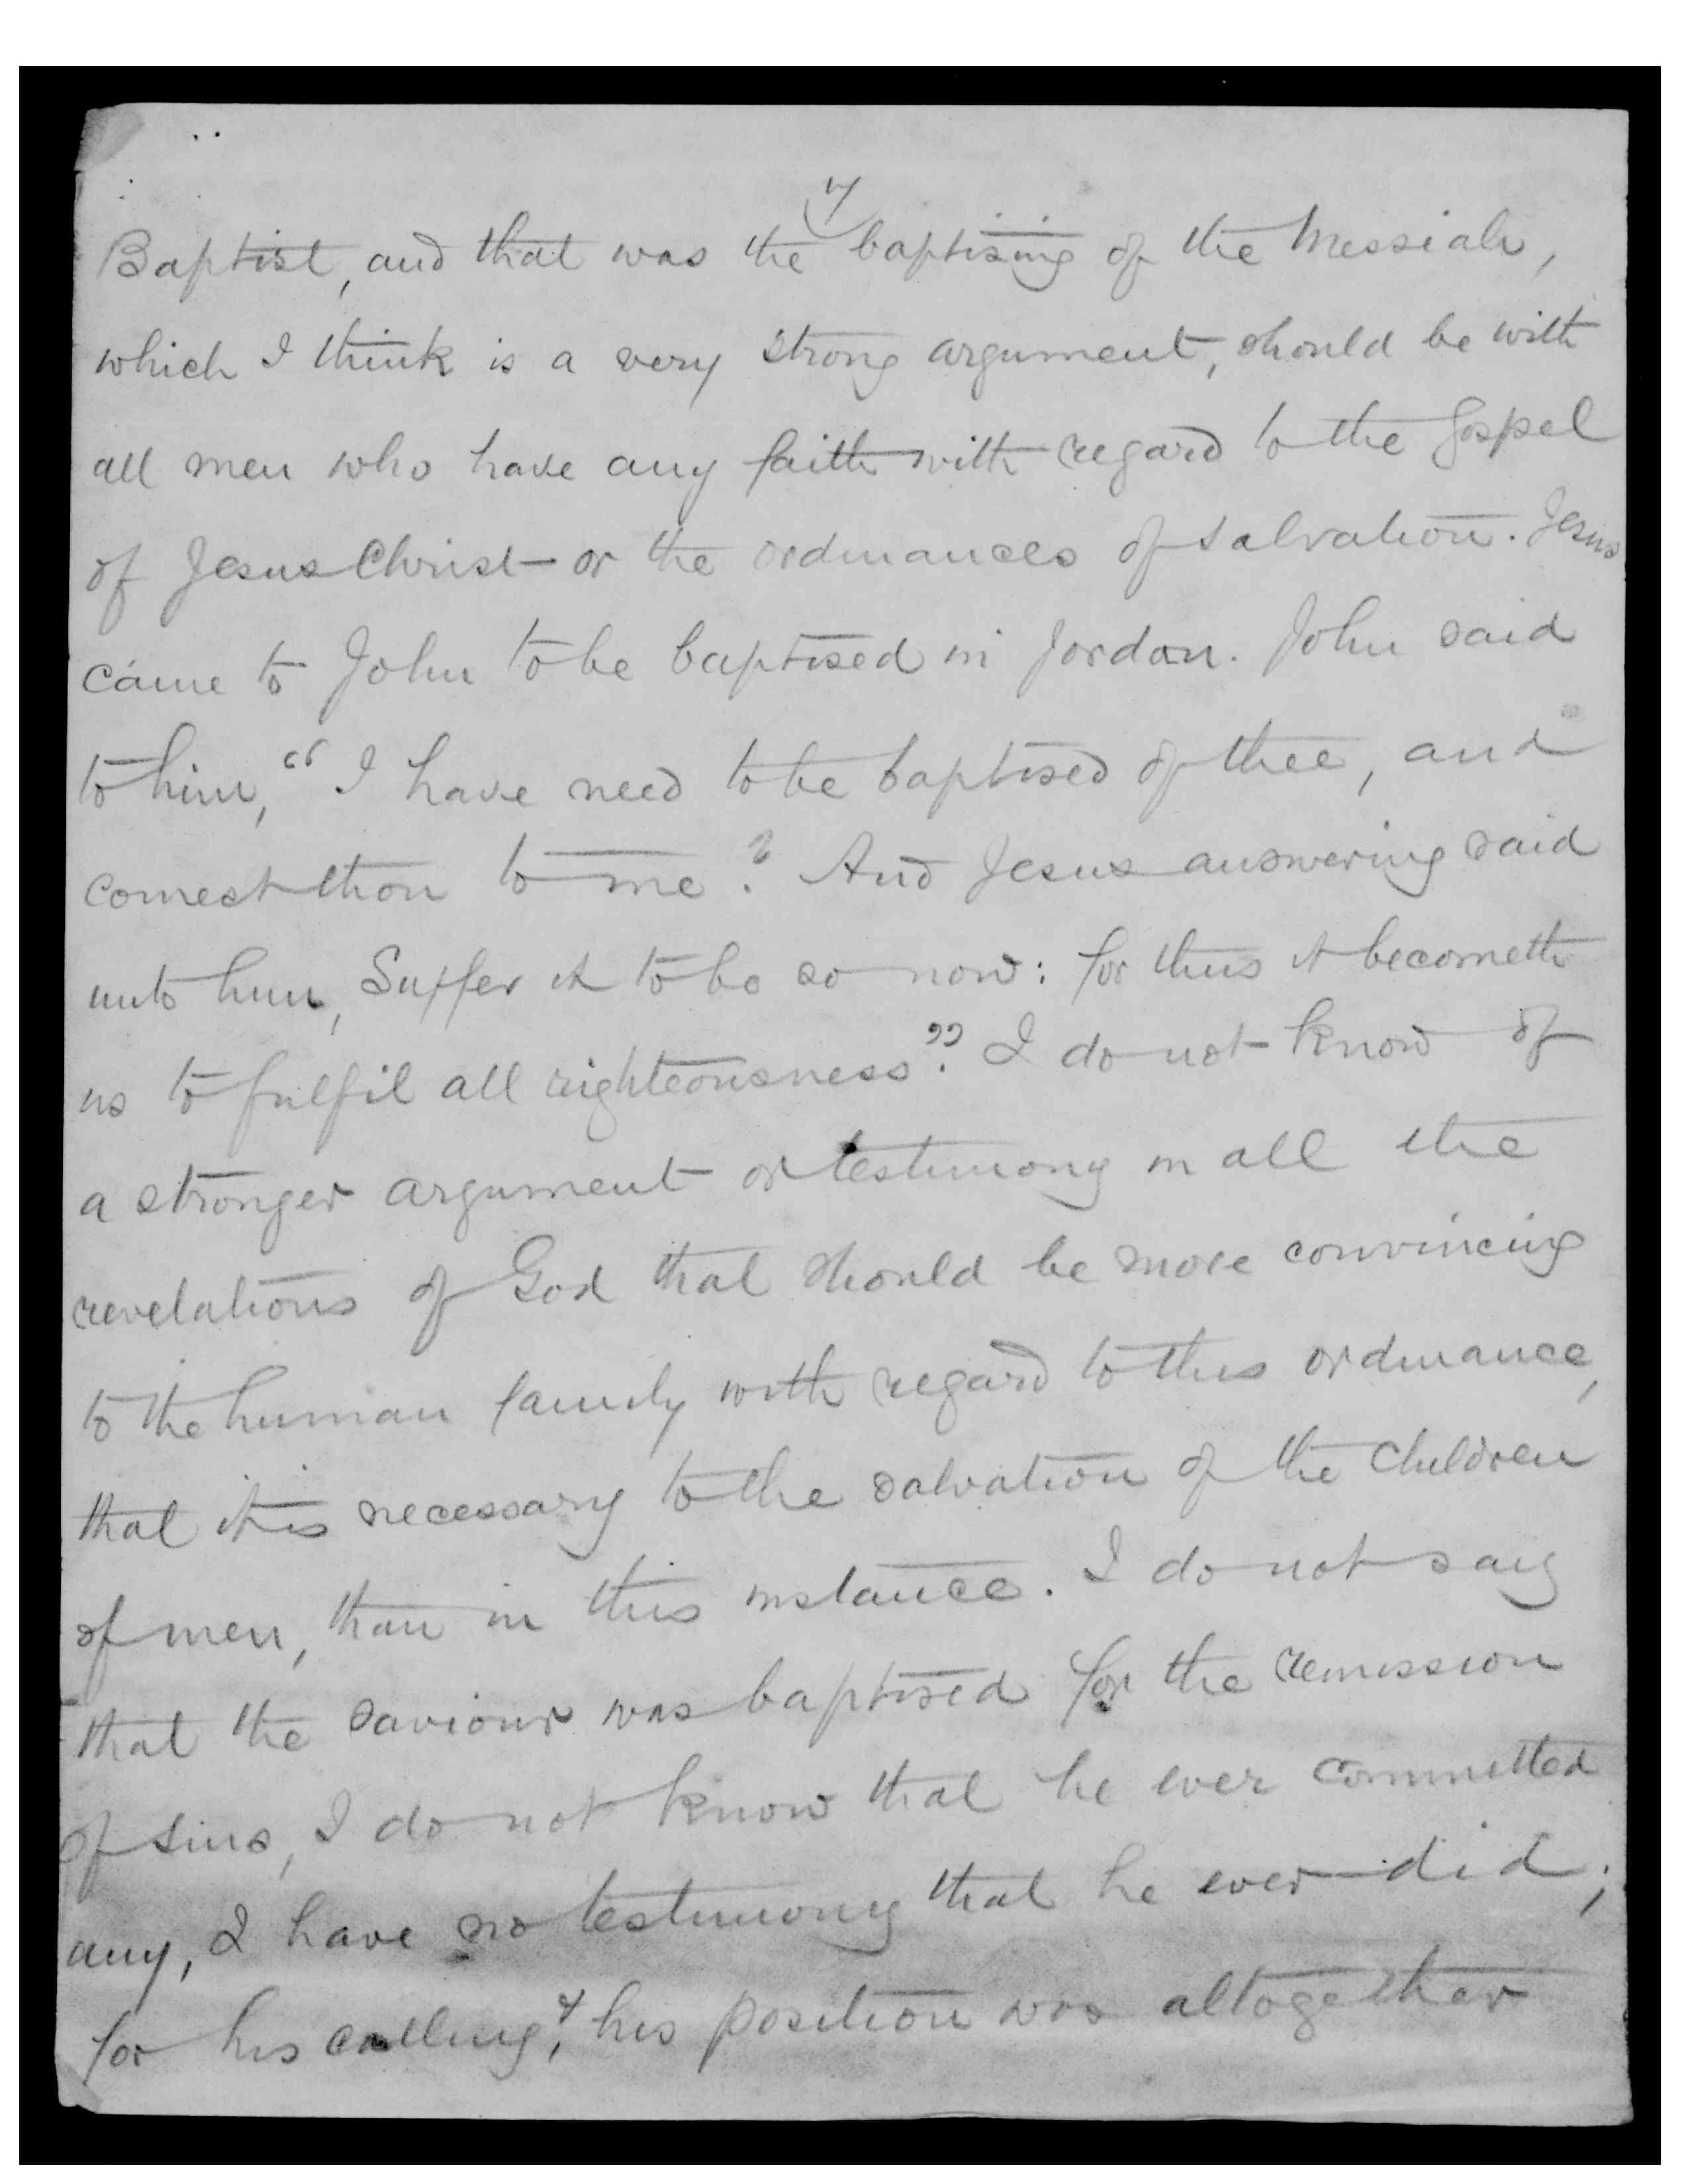 7
Baptist, and that was the baptising of the Messiah,
which I think is a very strong argument, should be with
all men who have any faith with regard to the Gospel
of Jesus Christ or the ordinances of salvation. Jesus
came to John to be baptised in Jordan. John said
to him, "I have need to be baptised of thee, and
comest thou to me? And Jesus answering said
unto him, Suffer it to be so now: for thus it becometh
us to fulfil all righteousness". I do not know of
a stronger argument or testimony in all the
revelations of God that should be more convincing
to the human family with regard to this ordinance,
that it is necessary to the salvation of the children
of men, than in this instance. I do not say
that the saviour was baptised for the remission
of sins, I do not know that he ever committed
any, I have no testimony that he ever did;
for his calling, & his position was altogether